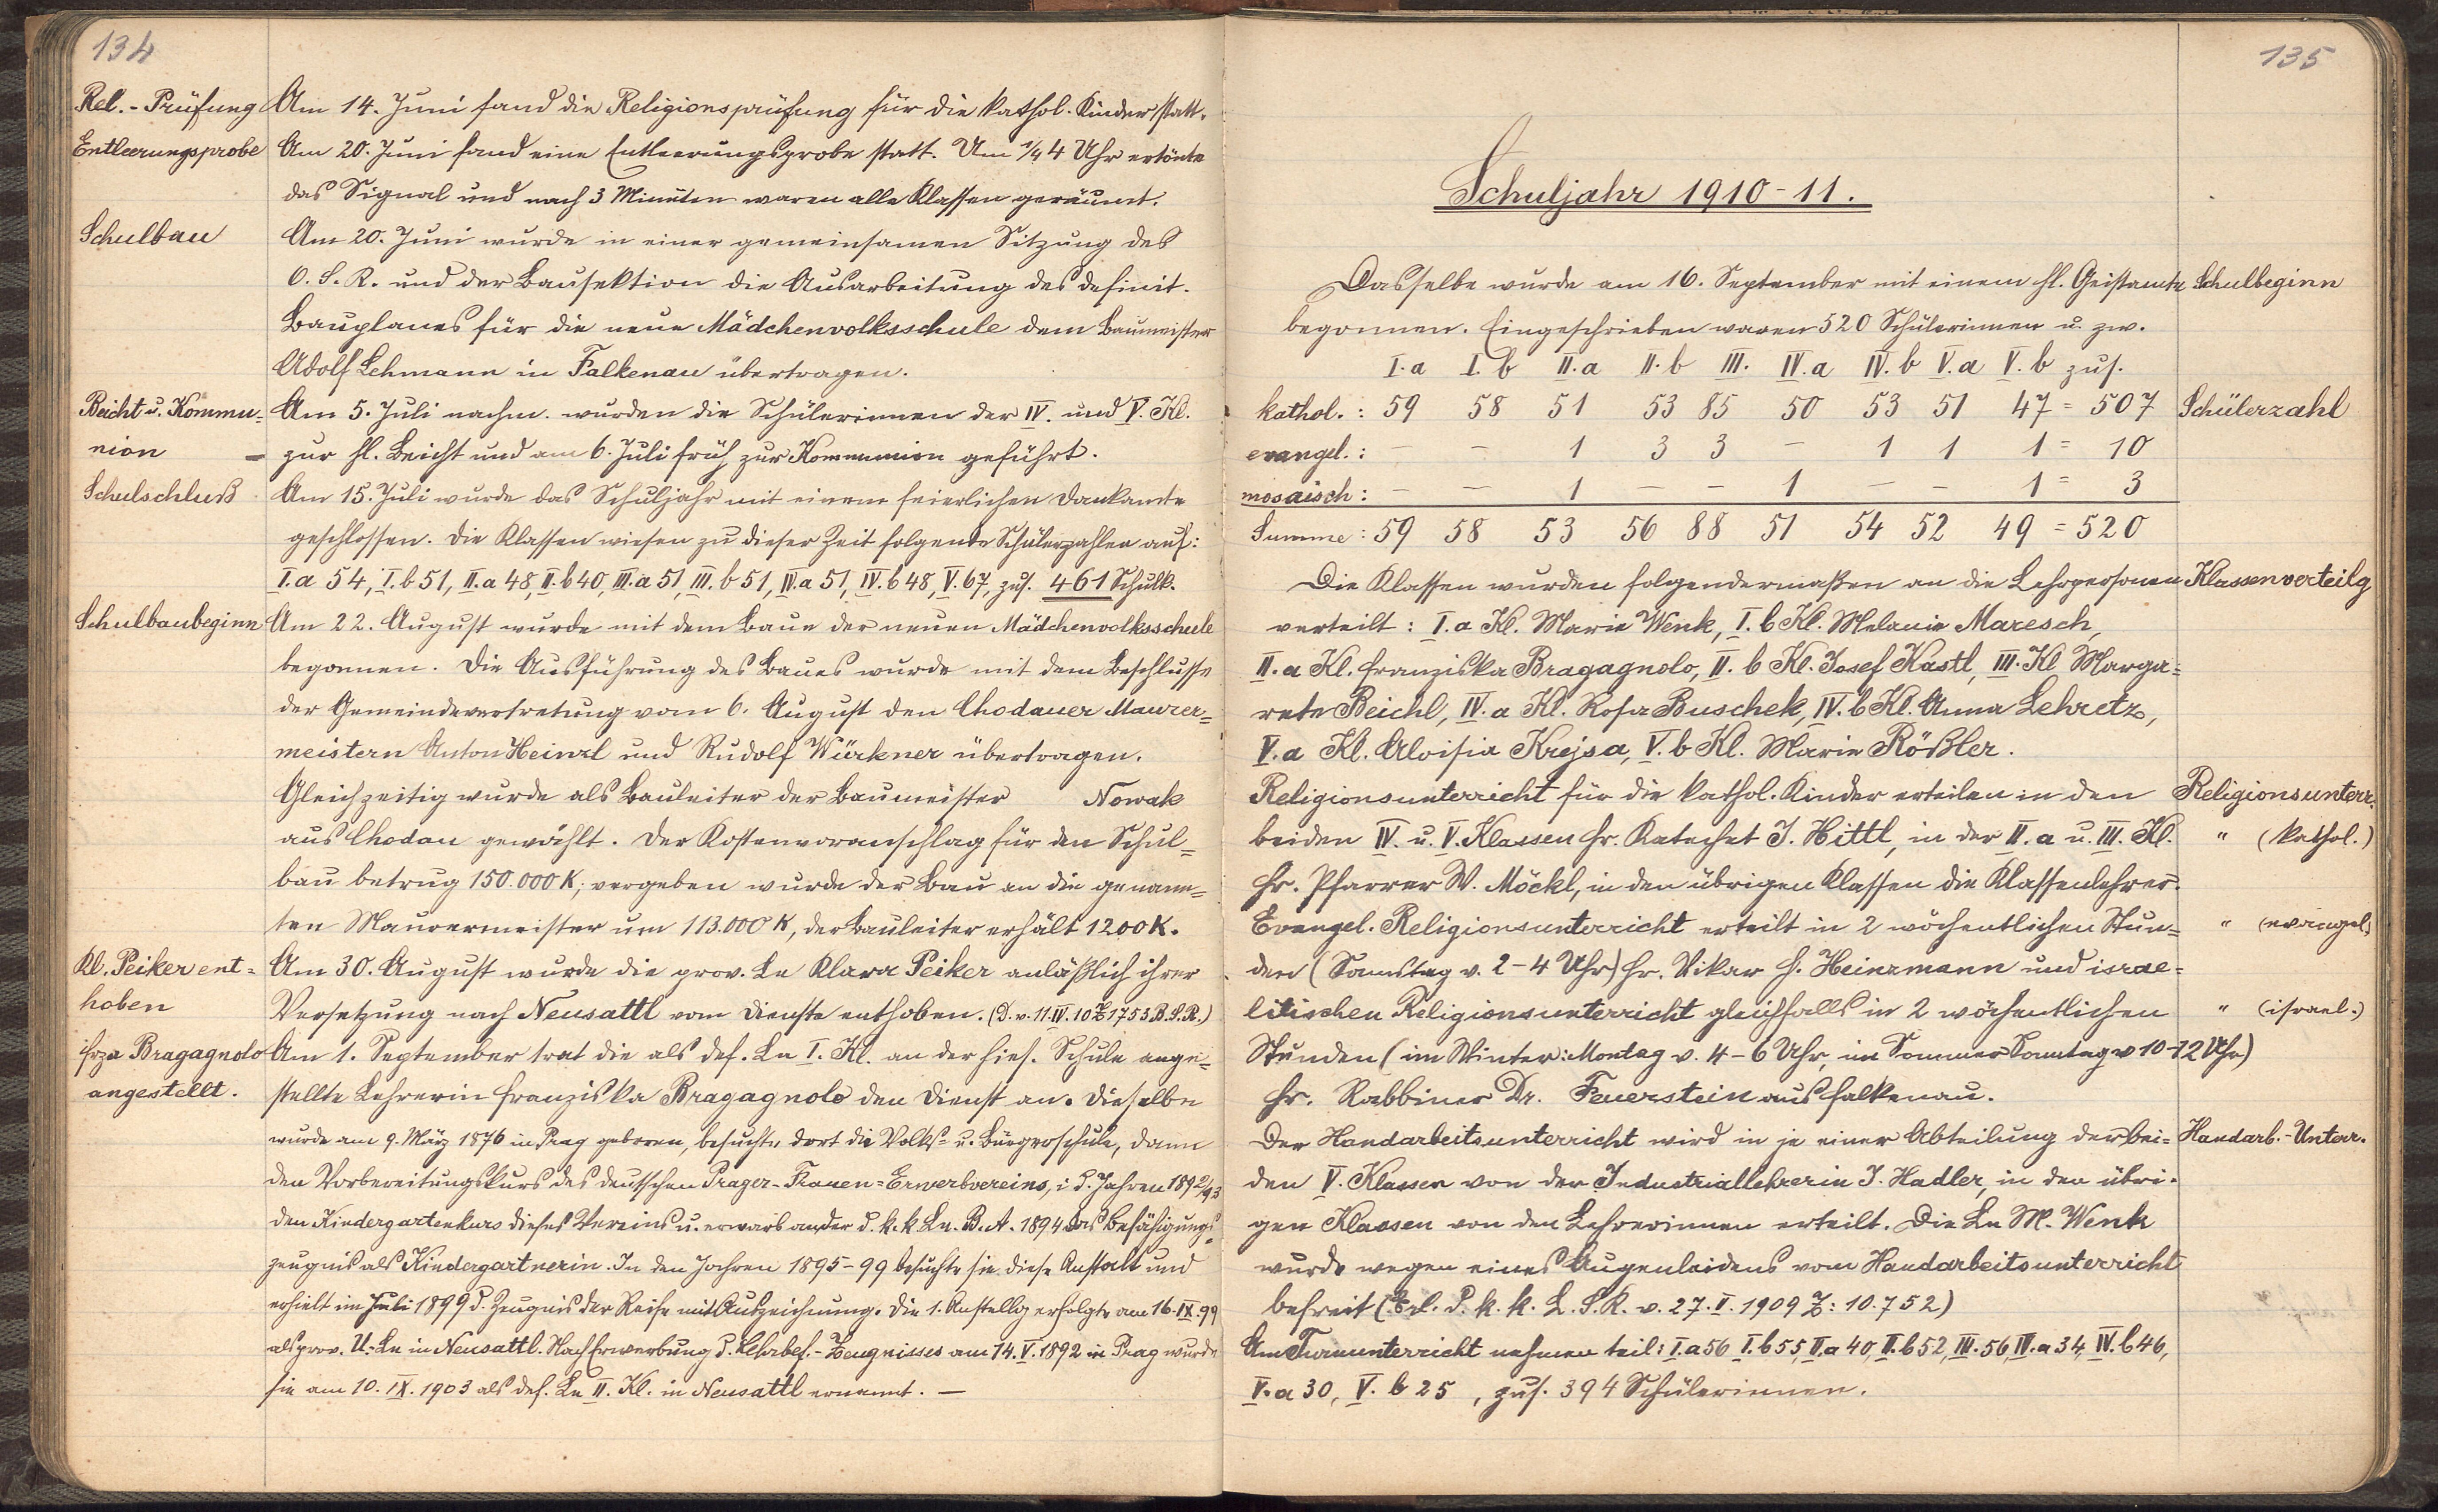 134
Rel.-Prüfung Am 14. Juni fand die Religionsprüfung für die kathol. Kinder statt.
Entleerungsprobe Am 20. Juni fand eine Entleerungsprobe statt. Um 1/4 4 Uhr ertönte
das Signal und nach 3 Minuten waren alle Klassen geräumt.
Schulbau Am 20. Juni wurde in einer gemeinsamen Sitzung des
O.S.R. und der Bausektion die Ausarbeitung des definit.
Bauplanes für die neue Mädchenvolksschule dem Baumeister
Adolf Lehmann in Falkenau übertragen.
Beicht u. Kommu= Am 5. Juli nachm. wurden die Schülerinnen der IV. und V. Kl.
nion – zur hl. Beicht und am 6. Juli früh zur Kommunion geführt.
Schulschluß Am 15. Juli wurde das Schuljahr mit einem feierlichen Dankamte
geschlossen. Die Klassen wiesen zu dieser Zeit folgende Schülerzahlen auf:
I.a 54, I.b 51, II.a 48, II.b 40, III.a 51, III.b 51, IV.a 51, IV.b 48, V. 67, zus. 461 Schulk.
Schulbaubeginn Am 22. August wurde mit dem Baue der neuen Mädchenvolksschule
begonnen. Die Ausführung des Baues wurde mit dem Beschlusse
der Gemeindevertretung vom 6. August den Chodauer Maurer=
meistern Anton Heinzl und Rudolf Würkner übertragen.
Gleichzeitig wurde als Bauleiter der Baumeister Nowak
aus Chodau gewählt. Der Kostenvoranschlag für den Schul=
bau betrug 150.000 K; vergeben wurde der Bau an die genann=
ten Maurermeister um 113.000 K, der Bauleiter erhält 1200 K.
Kl. Peiker ent= Am 30. August wurde die prov. Ln Klara Peiker anläßlich ihrer
hoben Versetzung nach Neusattl vom Dienste enthoben. (D. v. 11.IV.10 Z 1753 B.S.R.)
Frza Bragagnolo Am 1. September trat die als def. Ln I. Kl. an der hies. Schule ange=
angestellt. stellte Lehrerin Franziska Bragagnolo den Dienst an. Dieselbe
wurde am 9. März 1876 in Prag geboren, besuchte dort die Volks- u. Bürgerschule, dann
den Vorbereitungskurs des deutschen Prager-Frauen=Erwerbvereins, i. d. Jahren 1892/93
den Kindergartenkurs dieses Vereins u. erwarb an der d. k.k. Ln. B.A. 1894 das Befähigungs=
zeugnis als Kindergartnerin. In den Jahren 1895–99 besuchte sie diese Anstalt und
erhielt im Juli 1899 d. Zeugnis der Reife mit Auszeichnung. Die 1. Anstellg erfolgte am 16.IX.99
als prov. U.-Ln in Neusattl. Nach Erwerbung d. Lehrbef.-Zeugnisses am 14.V.1892 in Prag wurde
sie am 10.IX.1903 als def. Ln II. Kl. in Neusattl ernannt. –
135
Schuljahr 1910-11.
Dasselbe wurde am 16. September mit einem hl. Geistamte Schulbeginn
begonnen. Eingeschrieben waren 520 Schülerinnen u. zw.
I.a I.b II.a II.b III. IV.a IV.b V.a V.b zus.
kathol.: 59 58 51 53 85 50 53 51 47 = 507 Schülerzahl
evangel.: – – 1 3 3 – 1 1 1 = 10
mosaisch: – – 1 – – 1 – – 1 = 3
Summe: 59 58 53 56 88 51 54 52 49 = 520
Die Klassen wurden folgendermaßen an die Lehrpersonen Klassenverteilg
verteilt: I.a Kl. Marie Wenk, I.b Kl. Melanie Maresch,
II.a Kl. Franziska Bragagnolo, II.b Kl. Josef Kastl, III. Kl Marga=
rete Beichl, IV.a Kl. Rosa Buschek, IV.b Kl. Anna Lehretz,
V.a Kl. Aloisia Krejsa, V.b Kl. Marie Rößler.
Religionsunterricht für die kathol. Kinder erteilen in den Religionsunterr.
beiden IV. u. V. Klassen Hr. Katechet J. Hittl, in der II.a u. III. Kl. " (kathol.)
Hr. Pfarrer W. Möckl, in den übrigen Klassen die Klassenlehrer.
Evangel. Religionsunterricht erteilt in 2 wöchentlichen Stun= " (evangel.)
den (Samstag v. 2–4 Uhr) Hr. Vikar H. Heinzmann und israe=
litischen Religionsunterricht gleichfalls in 2 wöchentlichen " (israel.)
Stunden (im Winter: Montag v. 4–6 Uhr, im Sommer Sonntag v 10–12 Uhr)
Hr. Rabbiner Dr. Feuerstein aus Falkenau.
Der Handarbeitsunterricht wird in je einer Abteilung der bei= Handarb.-Unterr.
den V. Klassen von der Industriallehrerin J. Hadler, in den übri=
gen Klassen von den Lehrerinnen erteilt. Die Ln M. Wenk
wurde wegen eines Augenleidens vom Handarbeitsunterricht
befreit (Erl. d. k.k. L.S.R. v. 27.II.1909 Z: 10.752)
Am Turnunterricht nehmen teil: I.a 56 I.b 55, II.a 40, II.b 52, III. 56, IV.a 34, IV.b 46,
V.a 30, V.b 25, zus. 394 Schülerinnen.